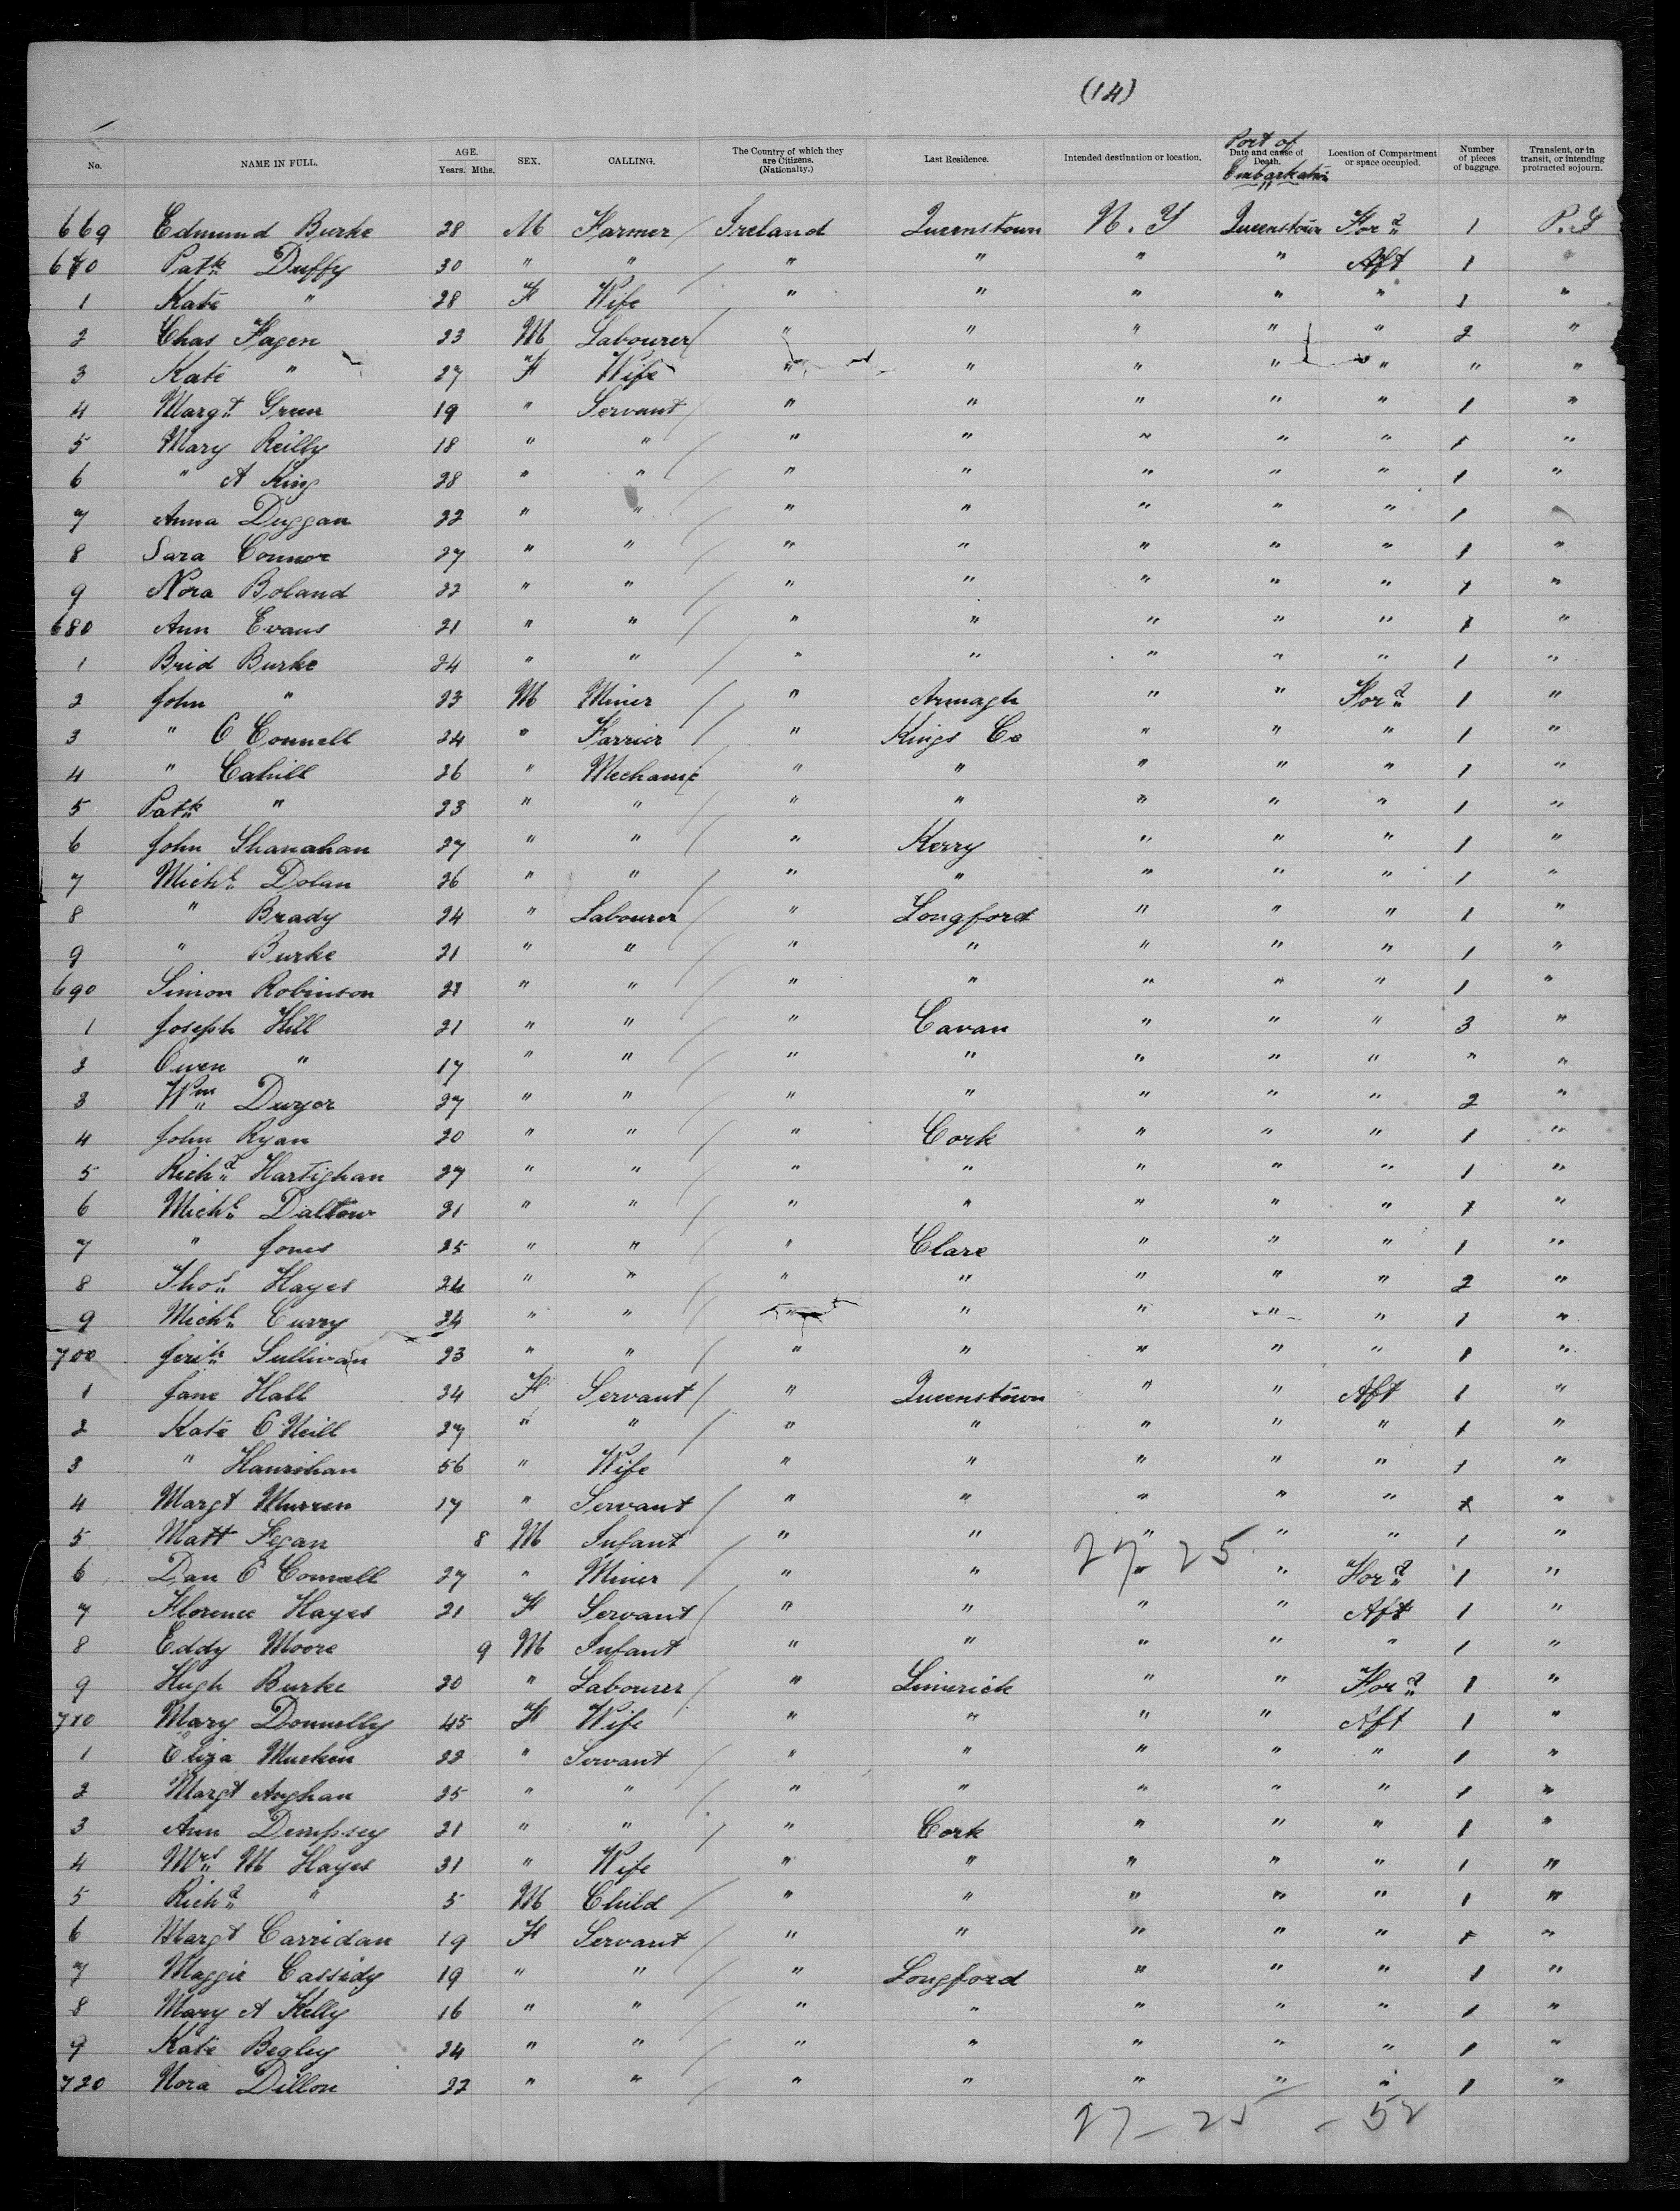 (14)
No. NAME IN FULL. AGE. Years. Mths. SEX. CALLING. The Country of which they are Citizens. (Nationalty.) Last Residence. Intended destination or location. Port of Embarkation Date and cause of Death. Location of Compartment or space occupied. Number of pieces of baggage. Transient, or in transit, or intending protracted sojourn.
669 Edmund Burke 28 M Farmer / Ireland Queenstown N. Y Queenstown For.d 1 P.S
670 Patk Duffy 30 " " / " " " " Aft 1
1 Kate " 28 F Wife " " " " " 1 "
2 Chas Fagen 23 M Labourer / " " " " " 2 "
3 Kate " 27 F Wife " " " " " " "
4 Margt Green 19 " Servant / " " " " " 1 "
5 Mary Reilly 18 " " / " " " " " 1 "
6 " A King 28 " " / " " " " " 1 "
7 Anna Duggan 22 " " / " " " " " 1
8 Sara Connor 27 " " / " " " " " 1 "
9 Nora Boland 22 " " / " " " " " 1 "
680 Ann Evans 21 " " / " " " " " 1 "
1 Brid Burke 24 " " / " " " " " 1 "
2 John " 23 M Miner / " Armagh " " For.d 1 "
3 " O Connell 24 " Farrier / " Kings Co " " " 1 "
4 " Cahill 26 " Mechanic / " " " " " 1 "
5 Patk " 23 " " / " " " " " 1 "
6 John Shanahan 27 " " / " Kerry " " " 1 "
7 Michl Dolan 26 " " / " " " " " 1 "
8 " Brady 24 " Labourer / " Longford " " " 1 "
9 " Burke 21 " " / " " " " " 1 "
690 Simon Robinson 21 " " / " " " " " 1 "
1 Joseph Hill 21 " " / " Cavan " " " 3 "
2 Owen " 17 " " / " " " " " " "
3 Wm Dwyer 27 " " / " " " " " 2 "
4 John Ryan 20 " " / " Cork " " " 1 "
5 Richd Hartighan 27 " " / " " " " " 1 "
6 Michl Dalton 21 " " / " " " " " 1 "
7 " Jones 25 " " / " Clare " " " 1 "
8 Thos Hayes 24 " " / " " " " " 2 "
9 Michl Curry 24 " " / " " " " " 1 "
700 Jerih Sullivan 23 " " / " " " " " 1 "
1 Jane Hall 24 F Servant / " Queenstown " " Aft 1 "
2 Kate O Neill 27 " " / " " " " " 1 "
3 " Hanrihan 56 " Wife " " " " " 1 "
4 Margt Murren 17 " Servant / " " " " " 1 "
5 Matt Fegan 8 M Infant " " " " " 1 "
27 - 25
6 Dan O Connell 27 " Miner / " " " " For.d 1 "
7 Florence Hayes 21 F Servant / " " " " Aft 1 "
8 Eddy Moore 9 M Infant " " " " " 1 "
9 Hugh Burke 20 " Labourer / " Limerick " " For.d 1 "
710 Mary Donnelly 45 F Wife " " " " Aft 1 "
1 Eliza 22 " Servant / " " " " " 1 "
2 Margt Anghan 25 " " / " " " " " 1 "
3 Ann Dempsey 21 " " / " Cork " " " 1 "
4 Mrs M Hayes 31 " Wife " " " " " 1 "
5 Richd " 5 M Child / " " " " " 1 "
6 Margt Carridan 19 F Servant / " " " " " 1 "
7 Maggie Cassidy 19 " " / " Longford " " " 1 "
8 Mary A Kelly 16 " " / " " " " " 1 "
9 Kate Begley 24 " " / " " " " " 1 "
720 Nora Dillon 22 " " / " " " " " 1 "
27 - 25 - 52